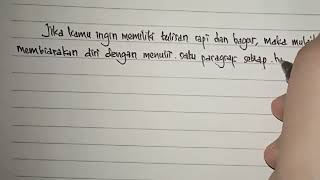 Jika kamu ingin memiliki tulisan rapi dan bagus, maka mulail
membiarakan diri dengan menulis satu paragraf setiap h